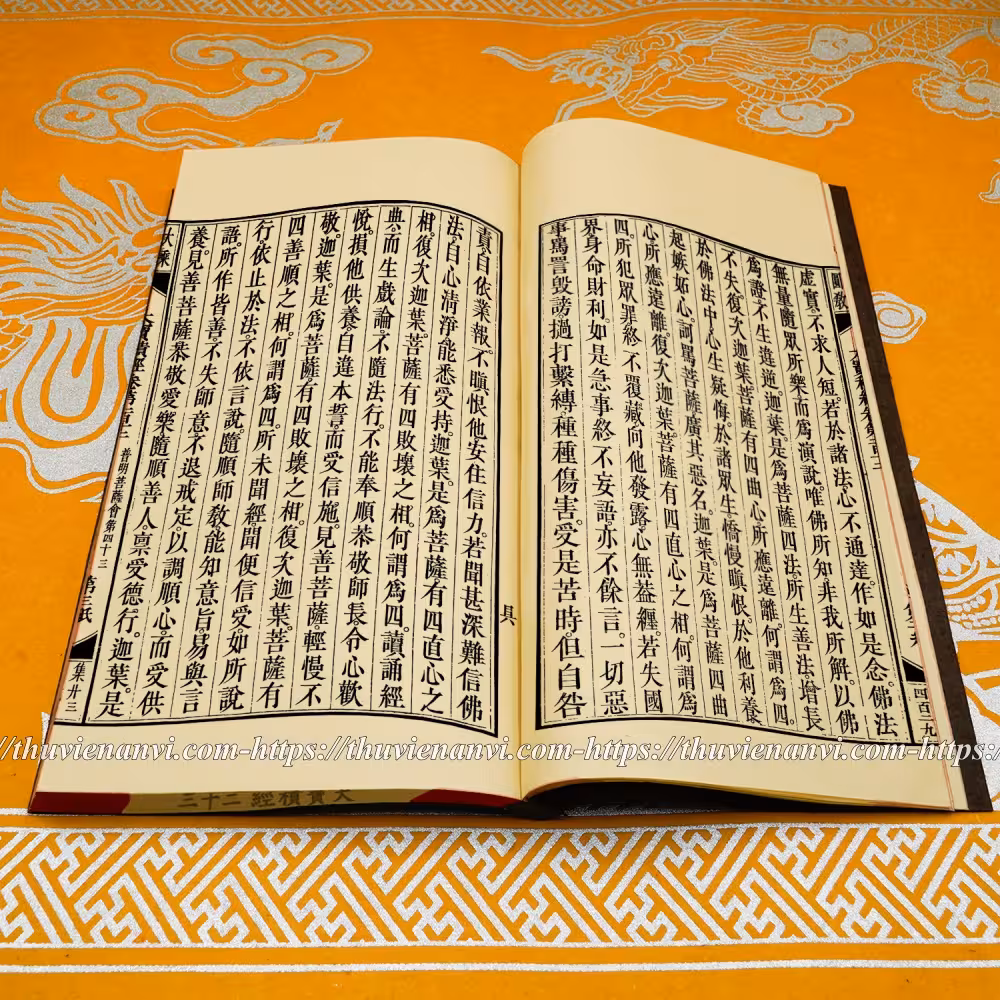 四百三九
虛實。不求人短。若於諸法。心不通達。作如是念。佛法
無量。隨眾所樂而爲演說。唯佛所知。非我所解。以佛
爲證。不生違逆。迦葉。是爲菩薩四法。所生善法。增長
不失。復次迦葉。菩薩有四曲心。所應遠離。何謂爲四。
於佛法中。心生疑悔。於諸眾生。憍慢瞋恨。於他利養。
起嫉妬心。訶罵菩薩。廣其惡名。迦葉。是爲菩薩四曲
心。所應遠離。復次迦葉。菩薩有四直心之相。何謂爲
四。所犯眾罪。終不覆藏。向他發露。心無蓋纏。若失國
界。身命財利。如是急事。終不妄語。亦不餘言。一切惡
事。罵詈毀謗。撾打繫縛。種種傷害。受是苦時。但自咎
具
責。自依業報。不瞋恨他。安住信力。若聞甚深難信佛
法。自心清淨。能悉受持。迦葉。是爲菩薩有四直心之
相。復次迦葉。菩薩有四敗壞之相。何謂爲四。讀誦經
典。而生戲論。不隨法行。不能奉順恭敬師長。令心歡
悅。損他供養。自違本誓。而受信施。見善菩薩。輕慢不
敬。迦葉。是爲菩薩有四敗壞之相。復次迦葉。菩薩有
四善順之相。何謂爲四。所未聞經。聞便信受。如所說
行。依止於法。不依言說。隨順師教。能知意旨。易與言
語。所作皆善。不失師意。不退戒定。以調順心。而受供
養。見善菩薩。恭敬愛樂。隨順善人。稟愛德行。迦葉。是
大寶積經卷第一百十二 善明菩薩會第四十三 第三紙 集廿三
大寶積經 二十三
//thuvienanvi.com-https://thuvienanvi.com-https://thuvienanvi.com-https:/